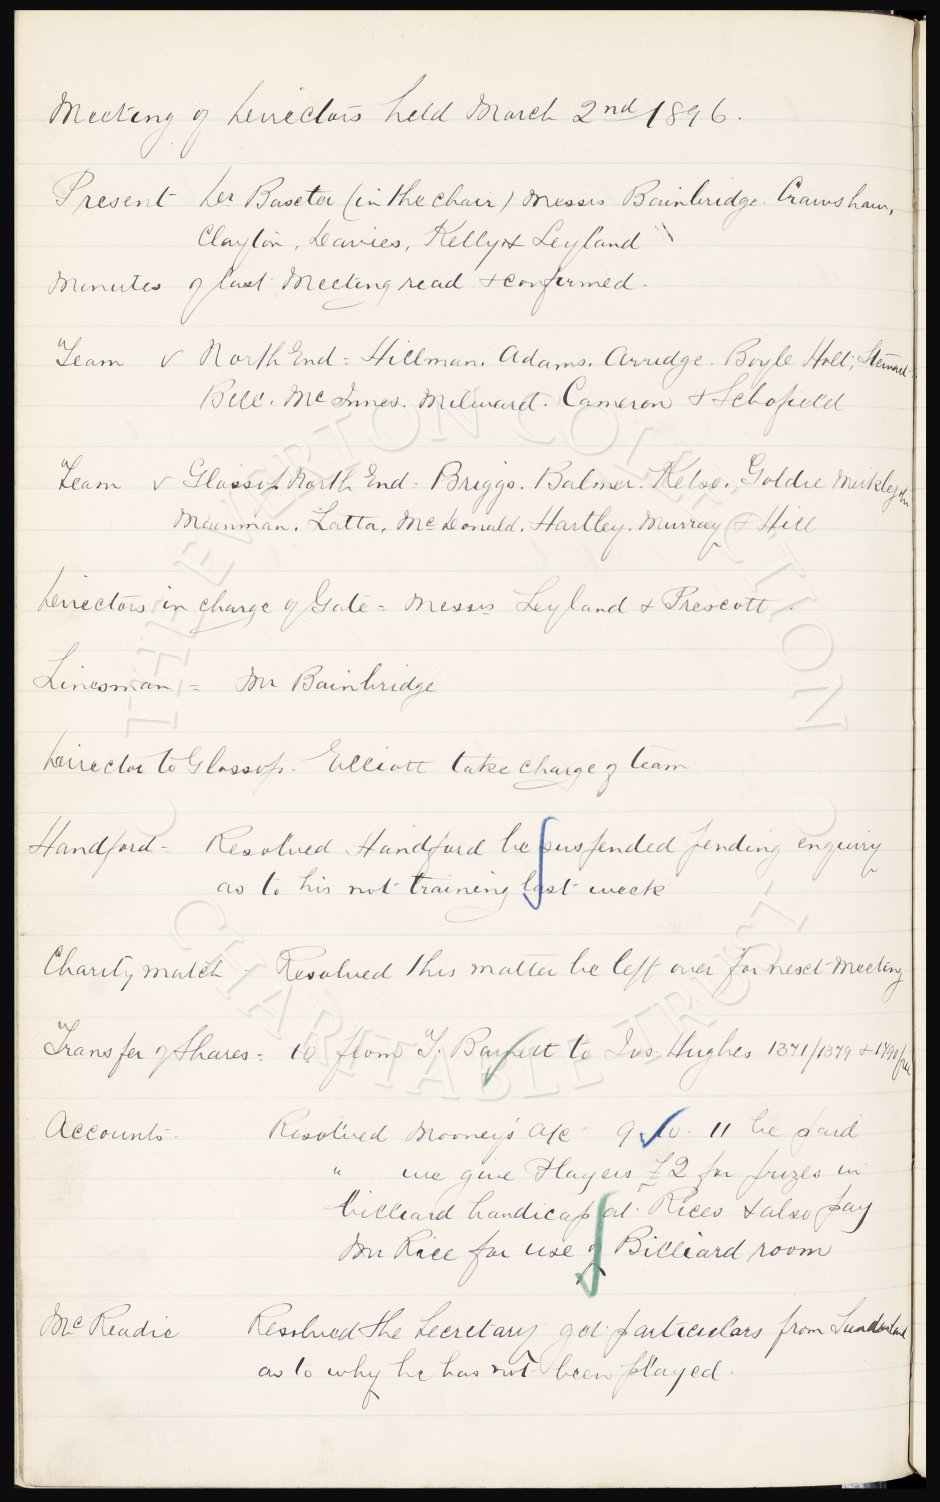 Meeting of Directors held March 2nd 1896.
Present Dr Baxter (in the chair) Messrs Bainbridge. Crawshaw,
Clayton, Davies, Kelly & Leyland
Minutes of last Meeting read & confirmed.
Team v North End = Hillman. Adams. Arridge. Boyle Holt, Stewart
Bell. McInnes. Milward. Cameron & Schofield
Team v Glossop North End = Briggs. Balmer. Kelso. Goldie Meiklejohn
Mainman. Latta. McDonald. Hartley. Murray & Hill
Directors in charge of Gate = Messrs Leyland & Prescott.
Linesman = Mr Bainbridge
Director to Glossop - Elliott take charge of team
Handford - Resolved Handford be suspended pending enquiry
as to his not training last week
Charity match - Resolved this matter be left over for next Meeting
Transfer of Shares = 10 from T. Barnett to Jos Hughes 1371/1379 & 1790
Accounts - Resolved Mooney's a/c 9. 10. 11 be paid
" we give Players £2 for prizes in
billiard handicap at Rices & also pay
Mr Rice for use of Billiard room
McReadie Resolved the Secretary get particulars from Sunderland
as to why he has not been played.
THE EVERTON COLLECTION
CHARITABLE TRUST